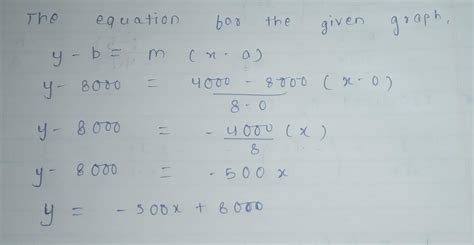 The equation bor the given graph.
y - b = m (x - a)
y - 8000 = 4000 - 8000 / 8 - 0 (x - 0)
y - 8000 = - 4000 / 8 (x)
y - 8000 = - 500x
y = - 500x + 8000